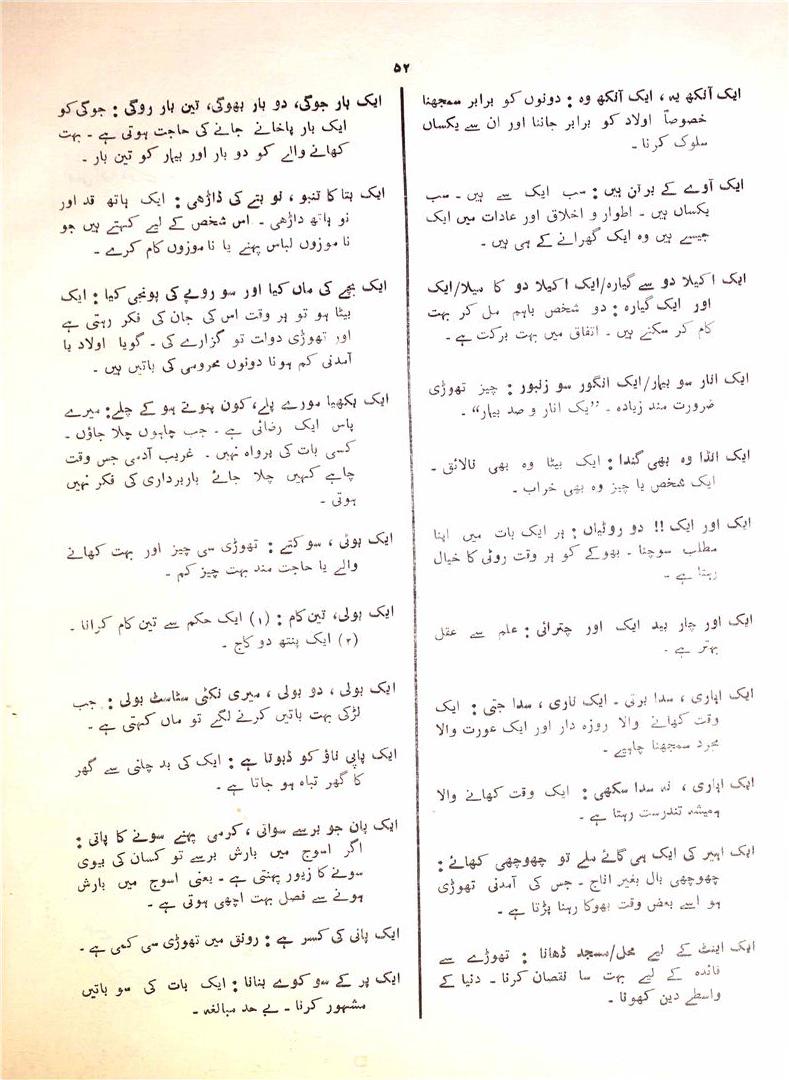 ۵۲
ایک آنکھ یہ ، ایک آنکھ وہ : دونوں کو برابر سمجھنا
خصوصاً اولاد کو برابر جاننا اور ان سے یکساں
سلوک کرنا ۔
ایک آوے کے برتن ہیں : سب ایک سے ہیں ۔ سب
یکساں ہیں ۔ اطوار و اخلاق اور عادات میں ایک
جیسے ہیں وہ ایک گھرانے کے ہی ہیں ۔
ایک اکیلا دو سے گیارہ/ایک اکیلا دو کا میلا/ایک
اور ایک گیارہ : دو شخص باہم مل کر بہت
کام کر سکتے ہیں ۔ اتفاق میں بہت برکت ہے ۔
ایک انار سو بیمار/ایک انگور سو زنبور : چیز تھوڑی
ضرورت مند زیادہ ۔ ”یک انار و صد بیمار“ ۔
ایک انڈا وہ بھی گندا : ایک بیٹا وہ بھی نالائق ۔
ایک شخص یا چیز وہ بھی خراب ۔
ایک اور ایک !! دو روٹیاں : ہر ایک بات میں اپنا
مطلب سوچنا ۔ بھوکے کو ہر وقت روٹی کا خیال
رہتا ہے ۔
ایک اور چار بید ایک اور چترائی : علم سے عقل
بہتر ہے ۔
ایک اہاری ، سدا برتی ۔ ایک ناری ، سدا جتی : ایک
وقت کھانے والا روزہ دار اور ایک عورت والا
مجرد سمجھنا چاہیے ۔
ایک اہاری ، نہ سدا سکھی : ایک وقت کھانے والا
ہمیشہ تندرست رہتا ہے ۔
ایک اہیر کی ایک ہی گائے ملے تو چھوچھی کھانے :
چھوچھی بال بغیر اناج ۔ جس کی آمدنی تھوڑی
ہو اسے بعض وقت بھوکا رہنا پڑتا ہے ۔
ایک اینٹ کے لیے محل/مسجد ڈھانا : تھوڑے سے
فائدہ کے لیے بہت سا نقصان کرنا ۔ دنیا کے
واسطے دین کھونا ۔
ایک بار جوگی، دو بار بھوگی، تین بار روگی : جوگی کو
ایک بار پاخانے جانے کی حاجت ہوتی ہے ۔ بہت
کھانے والے کو دو بار اور بیمار کو تین بار ۔
ایک بتا کا تنبو ، نو بتے کی ڈاڑھی : ایک ہاتھ قد اور
نو ہاتھ داڑھی ۔ اس شخص کے لیے کہتے ہیں جو
نا موزوں لباس پہنے یا نا موزوں کام کرے ۔
ایک بچے کی ماں کیا اور سو روپے کی پونجی کیا : ایک
بیٹا ہو تو ہر وقت اس کی جان کی فکر رہتی ہے
اور تھوڑی دولت تو گزارے کی ۔ گویا اولاد یا
آمدنی کم ہونا دونوں محروسی کی باتیں ہیں ۔
ایک بکھیا مورے پلے، کون ہنوتے ہو کے چلے : میرے
پاس ایک رضائی ہے ۔ جب چاہوں چلا جاؤں ۔
کسی بات کی پرواہ نہیں ۔ غریب آدمی جس وقت
چاہے کہیں چلا جائے باربرداری کی فکر نہیں
ہوتی ۔
ایک بوٹی ، سو کتے : تھوڑی سی چیز اور بہت کھانے
والے یا حاجت مند بہت چیز کم ۔
ایک بولی، تین کام : (۱) ایک حکم سے تین کام کرانا ۔
(۲) ایک پنتھ دو کاج ۔
ایک بولی ، دو بولی ، میری نکٹی سٹاسٹ بولی : جب
لڑکی بہت باتیں کرنے لگے تو ماں کہتی ہے ۔
ایک پاپی ناؤ کو ڈبوتا ہے : ایک کی بد چلنی سے گھر
کا گھر تباہ ہو جاتا ہے ۔
ایک پان جو برسے سواتی ، کرمی پہنے سونے کا پاتی :
اگر اسوج میں بارش برسے تو کسان کی بیوی
سونے کا زیور پہنتی ہے ۔ یعنی اسوج میں بارش
ہونے سے فصل بہت اچھی ہوتی ہے ۔
ایک پانی کی کسر ہے : رونق میں تھوڑی سی کمی ہے ۔
ایک پر کے سو کوے بنانا : ایک بات کی سو باتیں
مشہور کرنا ۔ بے حد مبالغہ ۔